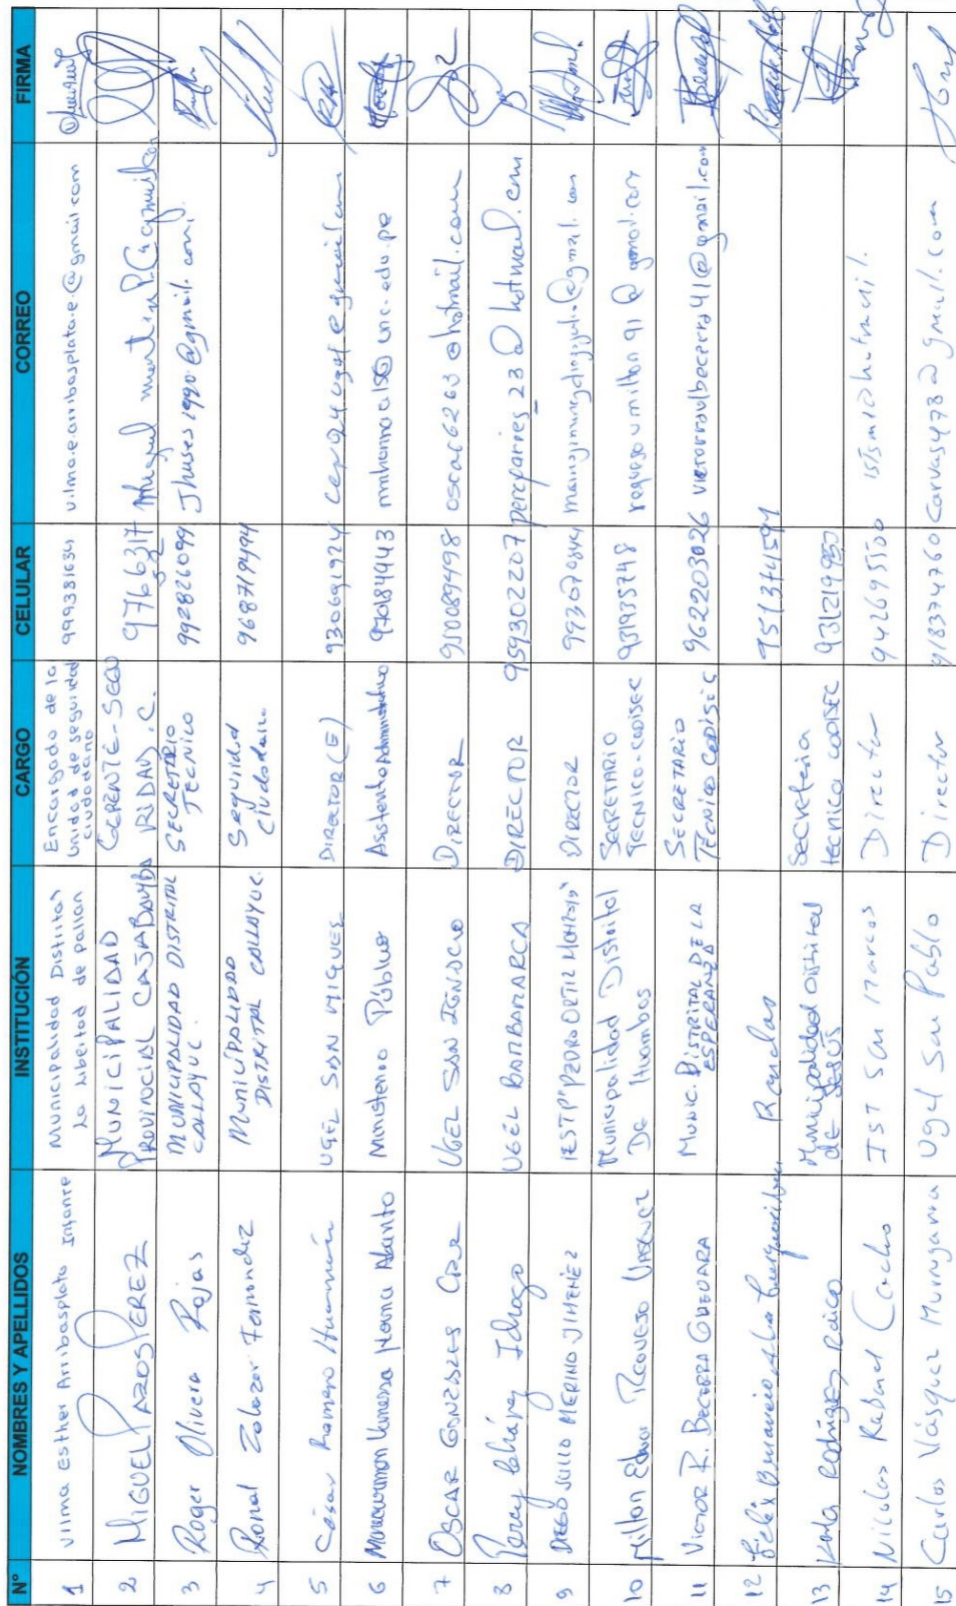 N° NOMBRES Y APELLIDOS INSTITUCIÓN CARGO CELULAR CORREO FIRMA
1 Vilma Esther Arribasplata Infante Municipalidad Distrital La Libertad de pallan Encargado de la Unidad de seguridad ciudadana 999381634 vilma.e.arribasplata.e@gmail.com
2 MIGUEL PAZOS PEREZ MUNICIPALIDAD PROVINCIAL CAJABAMBA GERENTE-SEGURIDAD.C. 976656317
3 Roger Olivera Rojas MUNICIPALIDAD DISTRITAL CALLAYUC. SECRETARIO TECNICO 992826099 Jhuses1990@gmail.com
4 Ronal Zalazar Fernandez MUNICIPALIDAD DISTRITAL CALLAYUC. Seguridad Ciudadana 968719494
5 César Romero Huamán UGEL SAN MIGUEL DIRECTOR (E) 930691924
6 Ministerio Público Asistente Administrativo 970184443
7 OSCAR GONZALES Cruz UGEL SAN IGNACIO DIRECTOR 950089498 oscar6263@hotmail.com
8 Percy Idrogo UGEL BAMBAMARCA DIRECTOR 959302207
9 DIEGO JULIO MERINO JIMÉNEZ IESTP "PEDRO ORTIZ MONTOYA" DIRECTOR 993670844
10 Milton Edwar REQUEJO VASQUEZ Municipalidad Distrital De Huambos SECRETARIO TECNICO-CODISEC 931935748 requejovmilton91@gmail.com
11 VICTOR R. BECERRA GUEVARA MUNIC. DISTRITAL DE LA ESPERANZA SECRETARIO TÉCNICO CODISEC 962203026 victorraulbecerra41@gmail.com
12 Félix Rondas 951341591
13 Karla Rodríguez Raico Municipalidad Distrital de Jesús Secretaria tecnica CODISEC 931219950
14 Nicolas Rabanal Cacho IST San Marcos Director 942695500
15 Carlos Vásquez Munygarra Ugel San Pablo Director 918374760 Carvas473@gmail.com